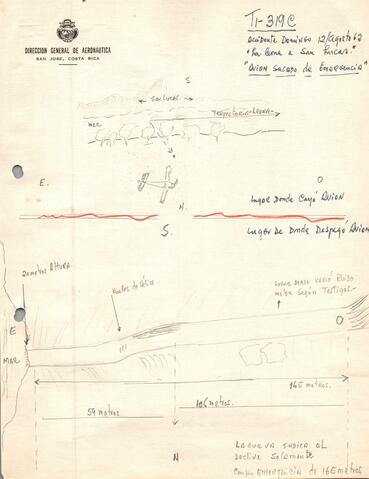 DIRECCION GENERAL DE AERONAUTICA
SAN JOSE, COSTA RICA
TI-319C
Accidente Domingo 12/Agosto 62
"La Leona a San Lucas"
"Avion sacado de Emergencia"
S
San Lucas
Trayectoria Leona
MAR
E.
O
N.
Lugar Donde Cayó Avion
S.
Lugar de Donde Despegó Avion
20 metros Altura
Huellas de
Lugar donde varió Ruido
motor Según Testigos
E
O
MAR
165 metros.
59 metros.
106 metros.
N
La curva indica el
declive Solamente
Emergencia de 165 metros